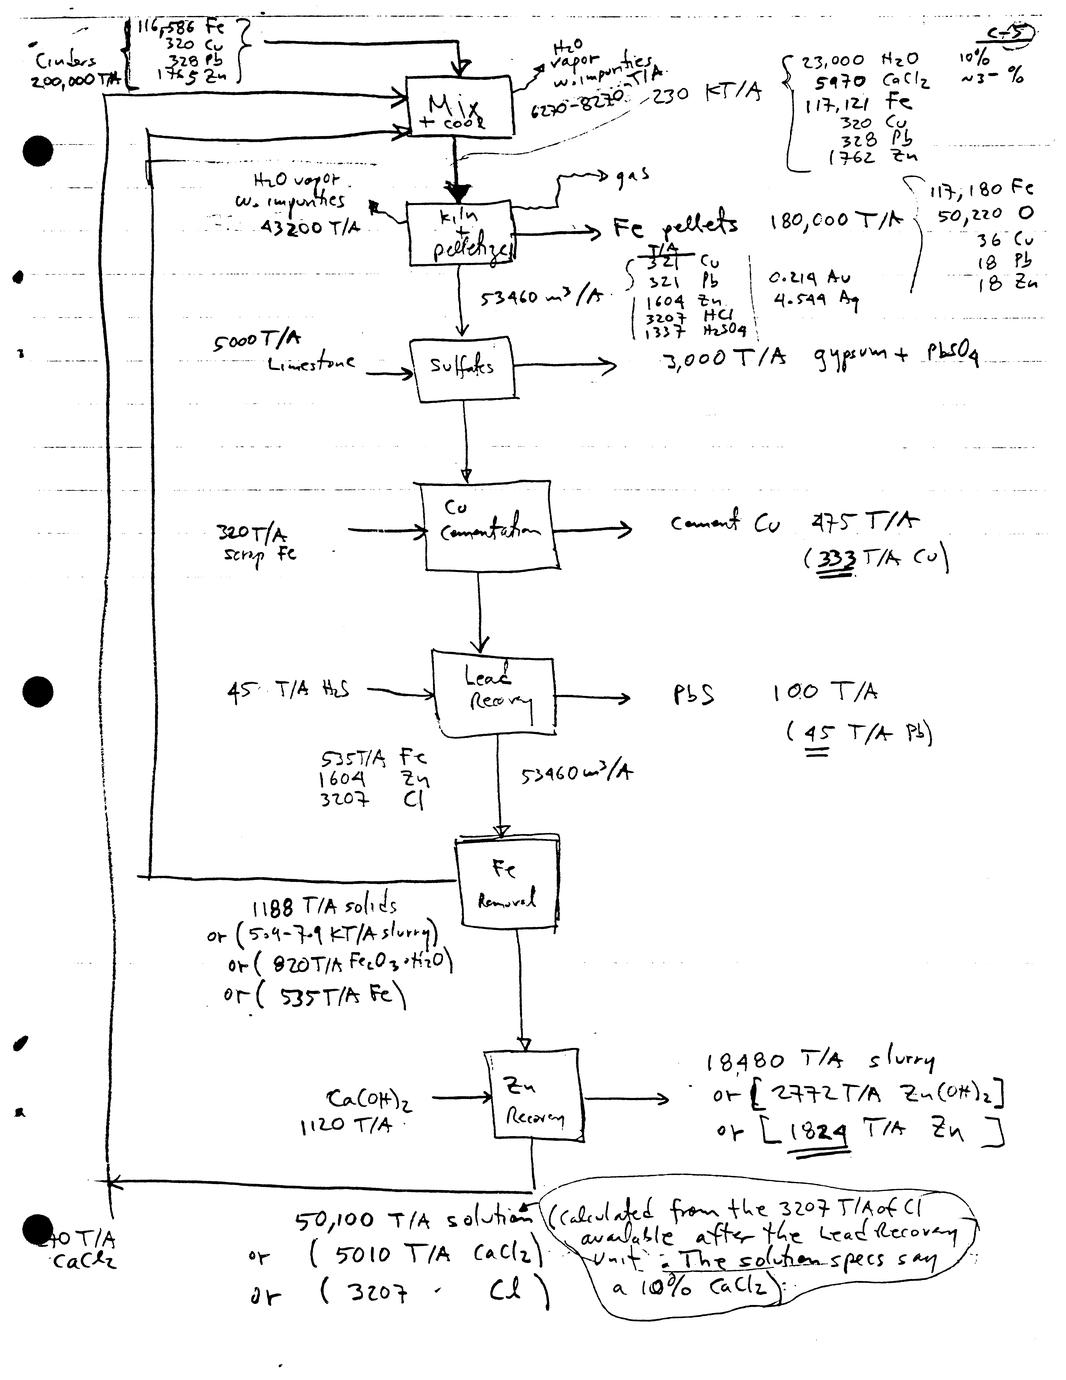 C-5
Cinders
200,000 T/A
116,586 Fe
320 Cu
328 Pb
1765 Zn
Mix
+ cook
H2O
vapor
w. impurities
6270-8270 T/A
230 KT/A
23,000 H2O 10%
5970 CaCl2 ~3- %
117,121 Fe
320 Cu
328 Pb
1762 Zn
H2O vapor
w. impurities
43200 T/A
kiln
+
pelletize
gas
Fe pellets 180,000 T/A
117,180 Fe
50,220 O
36 Cu
18 Pb
18 Zn
53460 m3/A
T/A
321 Cu
321 Pb
1604 Zn
3207 HCl
1337 H2SO4
0.214 Au
4.544 Ag
5000 T/A
Limestone
Sulfates
3,000 T/A gypsum + PbSO4
320 T/A
scrap Fe
Cu
Cementation
cement Cu 475 T/A
(333 T/A Cu)
45 T/A H2S
Lead
Recovery
PbS 100 T/A
(45 T/A Pb)
535 T/A Fe
1604 Zn
3207 Cl
53460 m3/A
Fe
Removal
1188 T/A solids
or (5.9-7.9 KT/A slurry)
or (820 T/A Fe2O3·H2O)
or (535 T/A Fe)
Ca(OH)2
1120 T/A
Zn
Recovery
18,480 T/A slurry
or [2772 T/A Zn(OH)2]
or [1824 T/A Zn]
T/A
CaCl2
50,100 T/A solution
or (5010 T/A CaCl2)
or (3207 Cl)
(calculated from the 3207 T/A of Cl
available after the Lead Recovery
unit. The solution specs say
a 10% CaCl2)